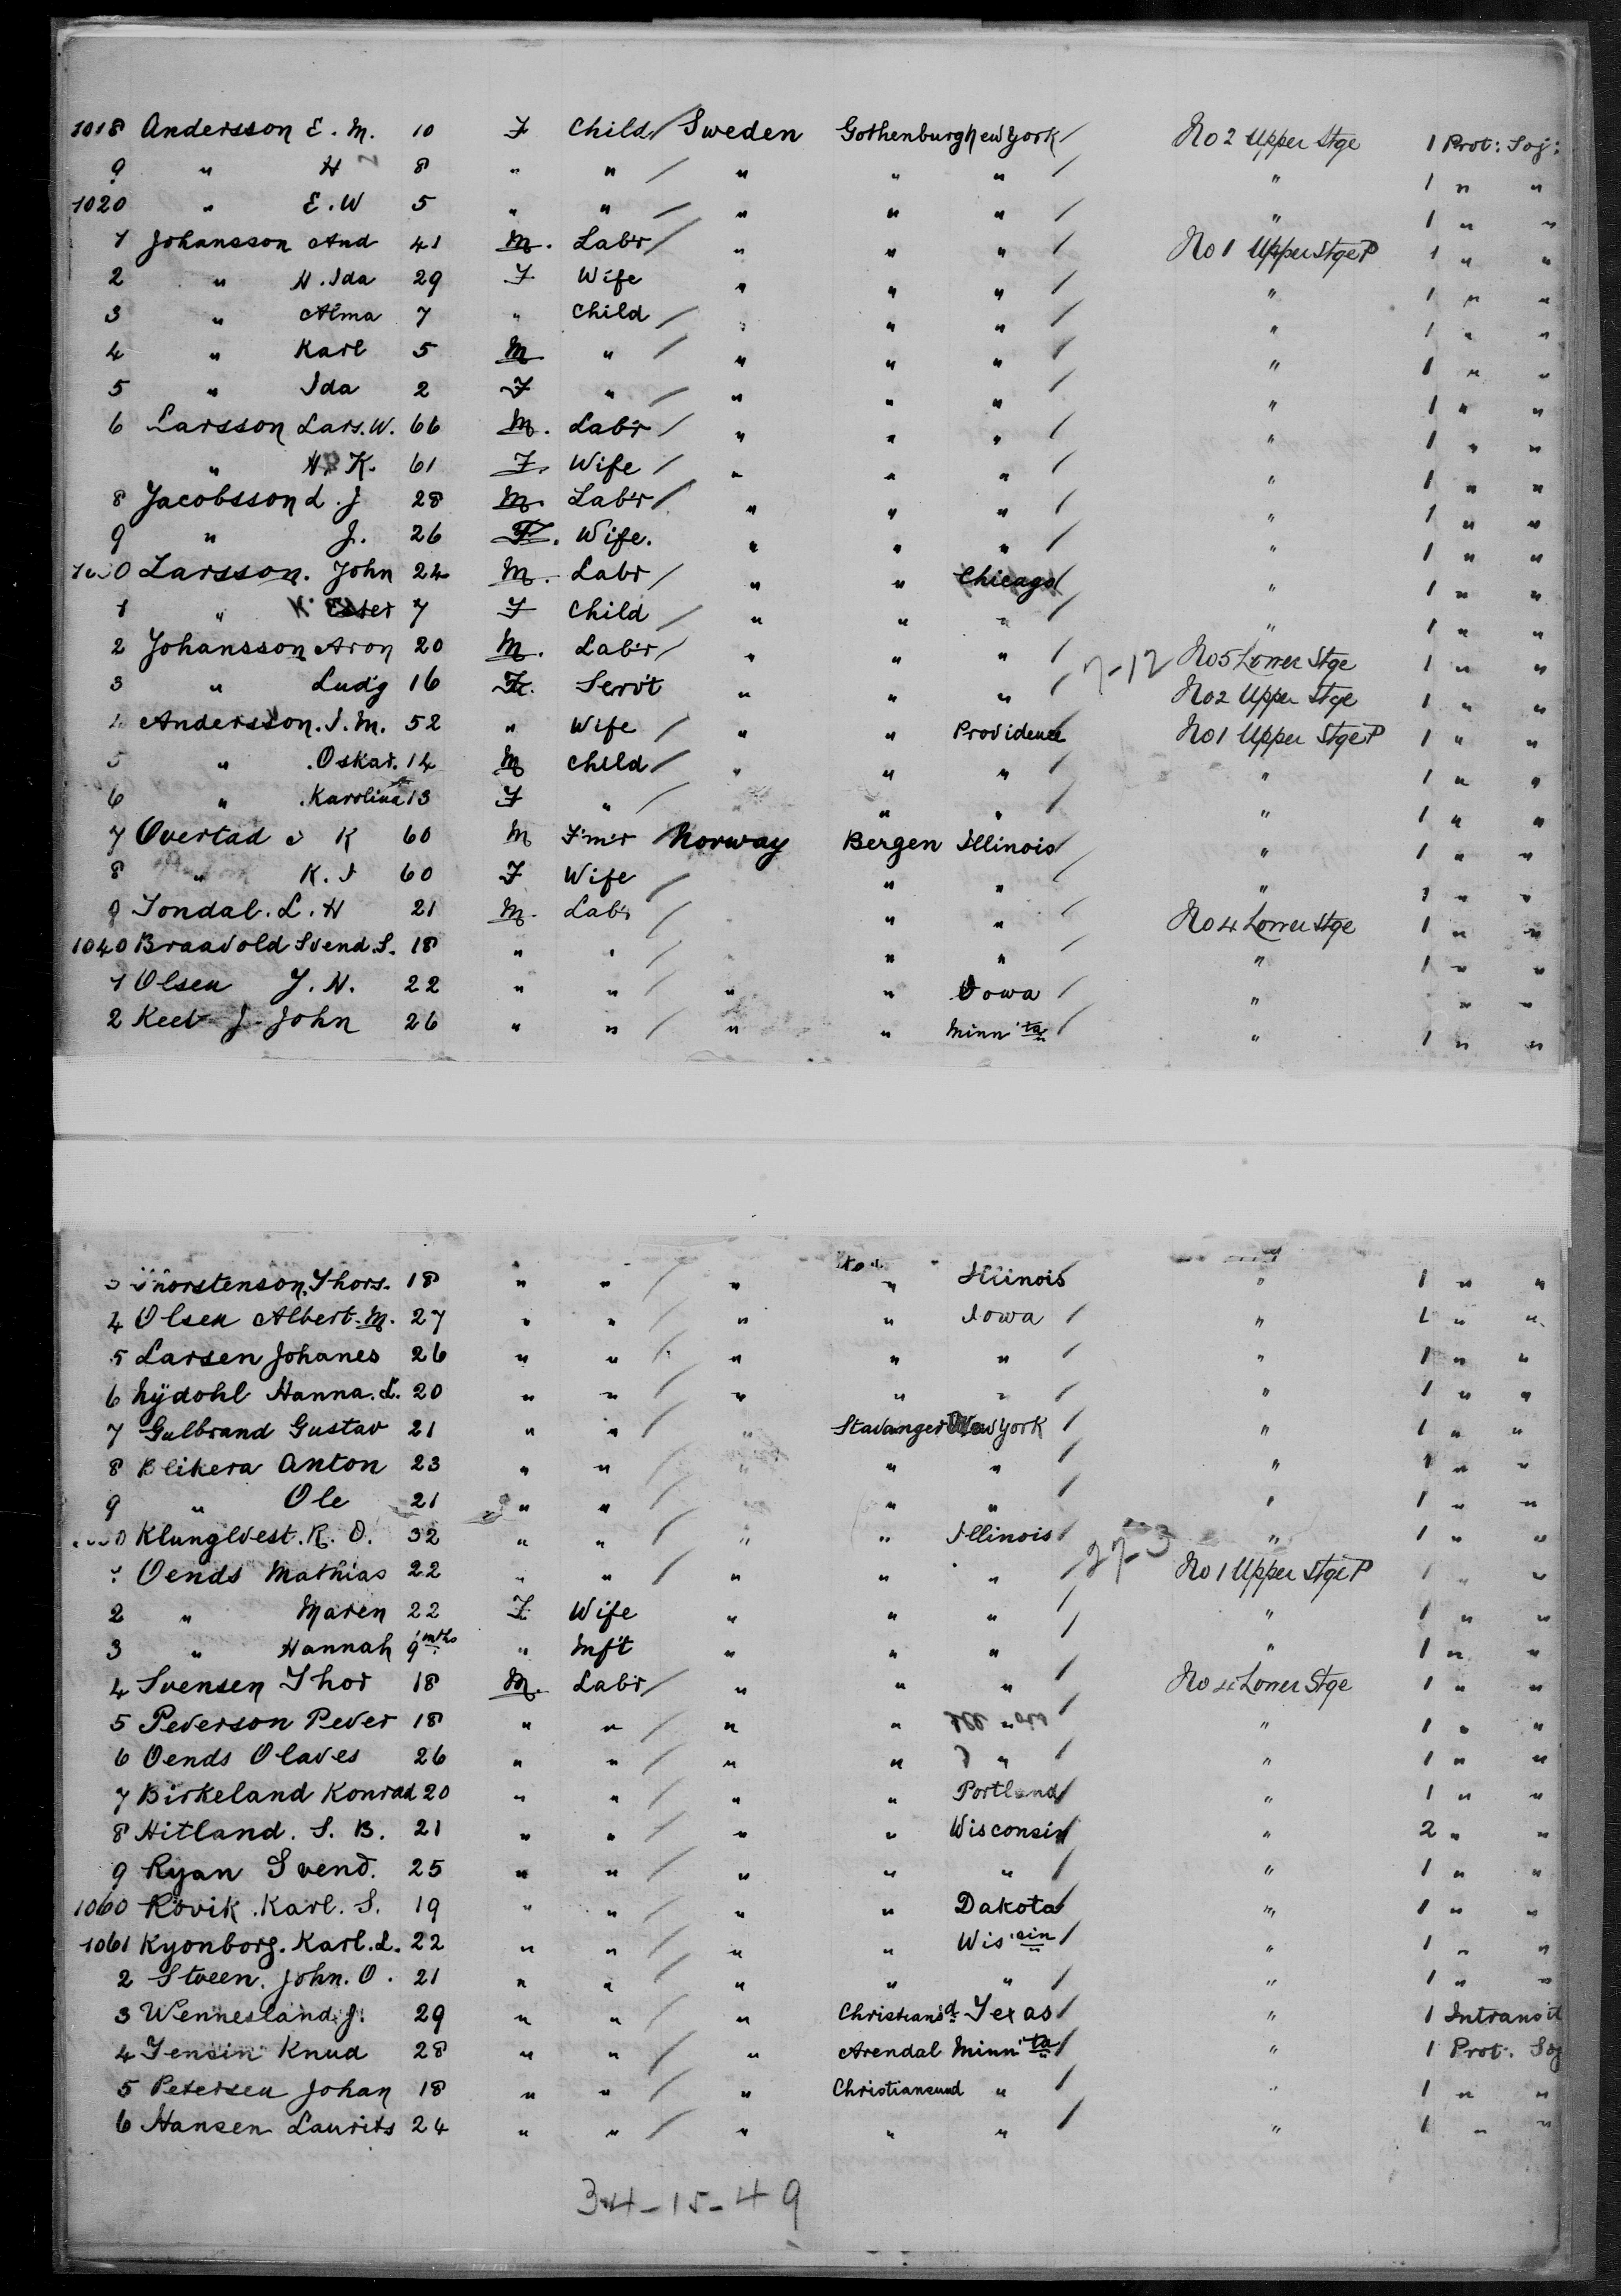 1018 Andersson E. M. 10 F Child / Sweden Gothenburg New York / No 2 Upper Stge 1 Prot: Soj:
9 " H 8 " " / " " " / " 1 " "
1020 " E. W 5 " " / " " " / " 1 " "
1 Johansson And 41 M. Lab'r / " " " / No 1 Upper Stge P 1 " "
2 " H. Ida 29 F Wife " " " / " 1 " "
3 " Alma 7 " Child / " " " / " 1 " "
4 " Karl 5 M " / " " " / " 1 " "
5 " Ida 2 F " / " " " / " 1 " "
6 Larsson Lars. W. 66 M. Lab'r / " " " / " 1 " "
" H. K. 61 F. Wife / " " " / " 1 " "
8 Jacobsson L. J 28 M. Lab'r / " " " / " 1 " "
9 " J. 26 F. Wife. " " " / " 1 " "
1030 Larsson. John 24 M. Labr / " " Chicago / " 1 " "
1 " K. Ester 7 F Child / " " " / " 1 " "
2 Johansson Aron 20 M. Lab'r / " " " / 7-12 No 5 Lower Stge 1 " "
3 " Ludg 16 F. Serv't " " " / No 2 Upper Stge 1 " "
4 Andersson. I. M. 52 " Wife / " " Providence No 1 Upper Stge P 1 " "
5 " . Oskar. 14 M Child / " " " / " 1 " "
6 " . Karolina 13 F " / " " " / " 1 " "
7 Overtad K 60 M F'm'r Norway Bergen Illinois / " 1 " "
8 " K. I 60 F Wife / " " / " 1 " "
9 Tondal. L. H 21 M. Lab'r / " " / No 4 Lower Stge 1 " "
1040 Braavold Svend. S. 18 " " / " " / " 1 " "
1 Olsen J. N. 22 " " / " " Iowa / " " "
2 J. John 26 " " / " " Minn'ta / " 1 " "
3 Thorstenson, Thors. 18 " " / " " Illinois " 1 " "
4 Olsen Albert. M. 27 " " / " " Iowa / " 1 " "
5 Larsen Johanes 26 " " / " " " / " 1 " "
6 Nydohl Hanna. L. 20 " " / " " " / " 1 " "
7 Gulbrand Gustav 21 " " / " Stavanger New York / " 1 " "
8 Blikera Anton 23 " " / " " " / " 1 " "
9 " Ole 21 " " / " " / " 1 " "
0 Klunglvest. R. O. 32 " " / " " Illinois / 27-3 " 1 " "
1 Oends Mathias 22 " " / " " " No 1 Upper Stge P 1 " "
2 " Maren 22 F Wife " " " / " 1 " "
3 " Hannah 9 mths " Inf't " " " / " 1 " "
4 Svensen Thor 18 M. Lab'r / " " " / No 4 Lower Stge 1 " "
5 Pederson Peder 18 " " / " " / " 1 " "
6 Oends Olaves 26 " " / " " " / " 1 " "
7 Birkeland Konrad 20 " " / " " Portland / " 1 " "
8 Hitland. S. B. 21 " " / " " Wisconsin / " 2 " "
9 Ryan Svend. 25 " " / " " " / " 1 " "
1060 Rövik. Karl. S. 19 " " / " " Dakota / " 1 " "
1061 Kyonborg. Karl. L. 22 " " / " " Wis'sin / " 1 " "
2 Stveen. John. O. 21 " " / " " " / " 1 " "
3 Wennesland J. 29 " " / " Christians'd Texas / " 1 Intransit
4 Jensin Knud 28 " " / " Arendal Minn'ta / " 1 Prot. Soj
5 Petersen Johan 18 " " / " Christiansund " / " 1 " "
6 Hansen Laurits 24 " " / " " " / " 1 " "
34-15-49